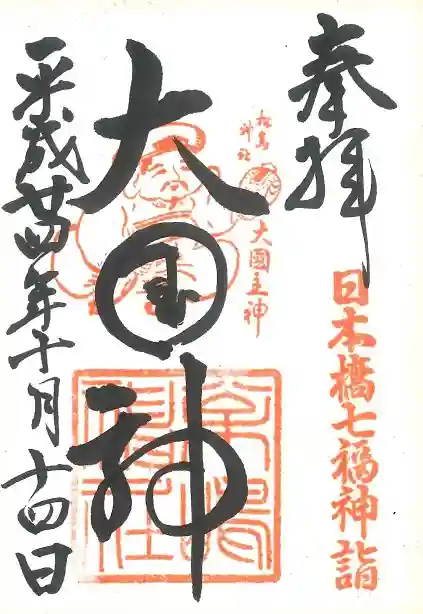 奉拝
日本橋七福神詣
松島
神社
大國主神
大国神
松嶋
神社
平成廿四年十月十四日